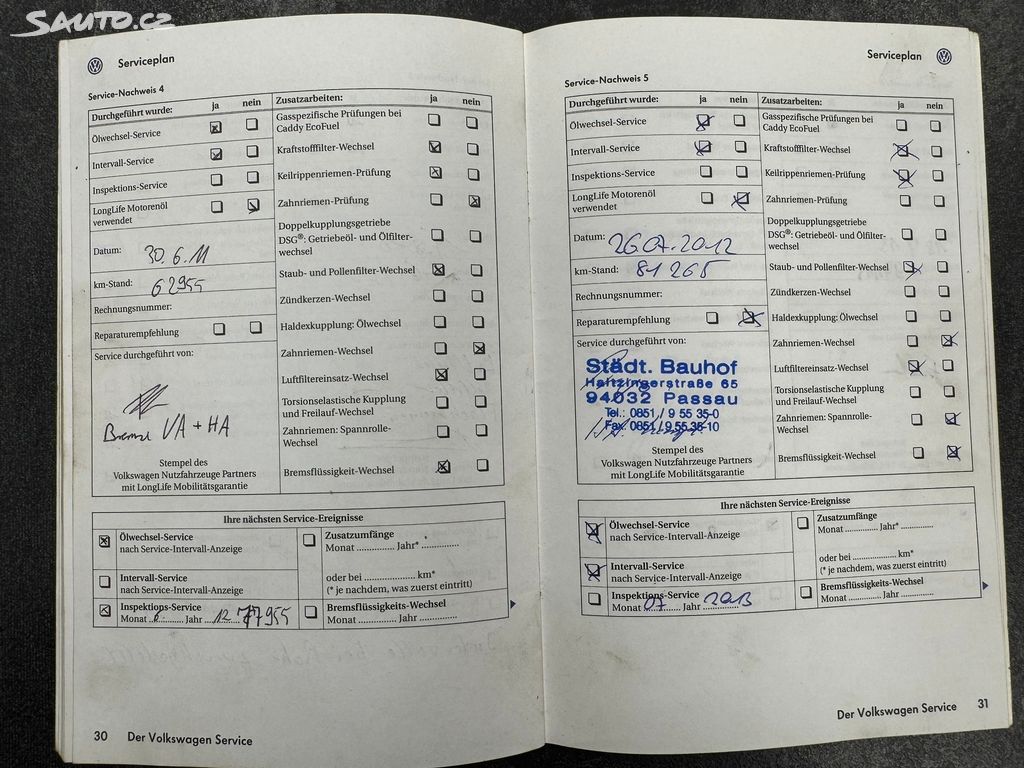 SAUTO.CZ
Serviceplan
Service-Nachweis 4
Durchgeführt wurde: ja nein Zusatzarbeiten: ja nein
Ölwechsel-Service
Intervall-Service
Inspektions-Service
LongLife Motorenöl
verwendet
Datum: 30.6.11
km-Stand: 62955
Rechnungsnummer:
Reparaturempfehlung
Service durchgeführt von:
Bremse VA + HA
Stempel des
Volkswagen Nutzfahrzeuge Partners
mit LongLife Mobilitätsgarantie
Gasspezifische Prüfungen bei
Caddy EcoFuel
Kraftstofffilter-Wechsel
Keilrippenriemen-Prüfung
Zahnriemen-Prüfung
Doppelkupplungsgetriebe
DSG®: Getriebeöl- und Ölfilter-
wechsel
Staub- und Pollenfilter-Wechsel
Zündkerzen-Wechsel
Haldexkupplung: Ölwechsel
Zahnriemen-Wechsel
Luftfiltereinsatz-Wechsel
Torsionselastische Kupplung
und Freilauf-Wechsel
Zahnriemen: Spannrolle-
Wechsel
Bremsflüssigkeit-Wechsel
Ihre nächsten Service-Ereignisse
Ölwechsel-Service
nach Service-Intervall-Anzeige
Intervall-Service
nach Service-Intervall-Anzeige
Inspektions-Service
Monat 6. Jahr 12 77955
Zusatzumfänge
Monat .............. Jahr* ..............
oder bei .................... km*
(* je nachdem, was zuerst eintritt)
Bremsflüssigkeits-Wechsel
Monat .............. Jahr ..............
30 Der Volkswagen Service
Serviceplan
Service-Nachweis 5
Durchgeführt wurde: ja nein Zusatzarbeiten: ja nein
Ölwechsel-Service
Intervall-Service
Inspektions-Service
LongLife Motorenöl
verwendet
Datum: 26.07.2012
km-Stand: 81265
Rechnungsnummer:
Reparaturempfehlung
Service durchgeführt von:
Städt. Bauhof
Haitzingerstraße 65
94032 Passau
Tel.: 0851 / 9 55 35-0
Fax 0851 / 9 55 35-10
Stempel des
Volkswagen Nutzfahrzeuge Partners
mit LongLife Mobilitätsgarantie
Gasspezifische Prüfungen bei
Caddy EcoFuel
Kraftstofffilter-Wechsel
Keilrippenriemen-Prüfung
Zahnriemen-Prüfung
Doppelkupplungsgetriebe
DSG®: Getriebeöl- und Ölfilter-
wechsel
Staub- und Pollenfilter-Wechsel
Zündkerzen-Wechsel
Haldexkupplung: Ölwechsel
Zahnriemen-Wechsel
Luftfiltereinsatz-Wechsel
Torsionselastische Kupplung
und Freilauf-Wechsel
Zahnriemen: Spannrolle-
Wechsel
Bremsflüssigkeit-Wechsel
Ihre nächsten Service-Ereignisse
Ölwechsel-Service
nach Service-Intervall-Anzeige
Intervall-Service
nach Service-Intervall-Anzeige
Inspektions-Service
Monat 07 Jahr 2013
Zusatzumfänge
Monat .............. Jahr* ..............
oder bei .................... km*
(* je nachdem, was zuerst eintritt)
Bremsflüssigkeits-Wechsel
Monat .............. Jahr ..............
Der Volkswagen Service 31